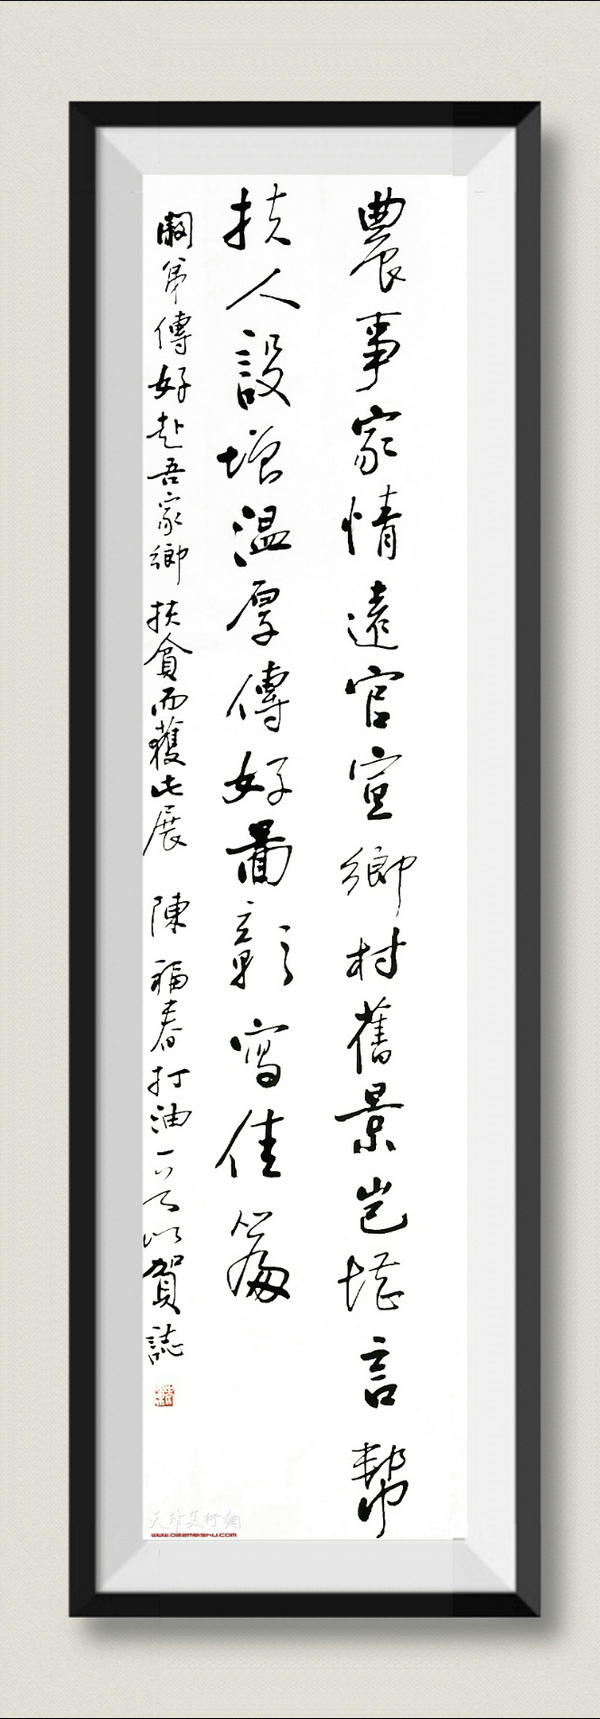 農事家情遠官宣鄉村舊景豈堪言幫
扶人設墙温厚傳好圖彰寫佳篇
弟傳好赴吾家鄉扶貧而獲此展 陳福春打油一首以賀誌
天津美術網